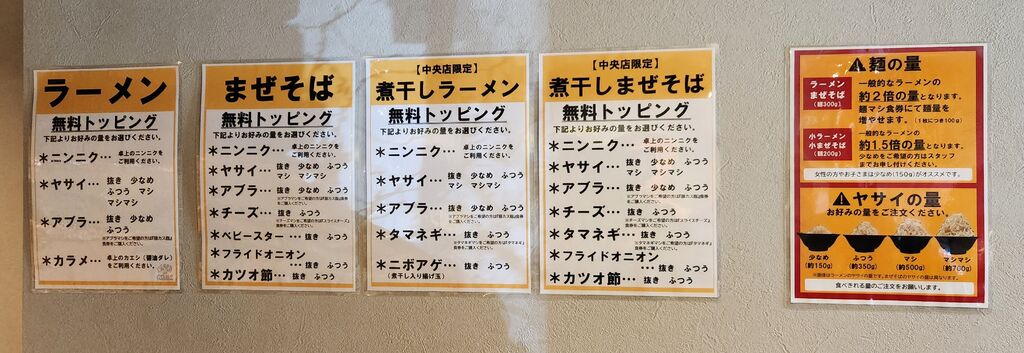 ラーメン
無料トッピング
下記よりお好みの量をお選びください。
＊ニンニク… 卓上のニンニクを
ご利用ください。
＊ヤサイ… 抜き 少なめ
ふつう マシ
マシマシ
＊アブラ… 抜き 少なめ
ふつう
＊カラメ… 卓上のカエシ（醤油ダレ）
をご利用ください。
まぜそば
無料トッピング
下記よりお好みの量をお選びください。
＊ニンニク… 卓上のニンニクを
ご利用ください。
＊ヤサイ… 抜き 少なめ ふつう
マシ マシマシ
＊アブラ… 抜き 少なめ ふつう
＊チーズ… 抜き ふつう
＊ベビースター… 抜き ふつう
＊フライドオニオン
… 抜き ふつう
＊カツオ節… 抜き ふつう
【中央店限定】
煮干しラーメン
無料トッピング
下記よりお好みの量をお選びください。
＊ニンニク… 卓上のニンニクを
ご利用ください。
＊ヤサイ… 抜き 少なめ ふつう
マシ マシマシ
＊アブラ… 抜き 少なめ ふつう
＊タマネギ… 抜き ふつう
＊ニボアゲ… 抜き ふつう
（煮干し入り揚げ玉）
【中央店限定】
煮干しまぜそば
無料トッピング
下記よりお好みの量をお選びください。
＊ニンニク… 卓上のニンニクを
ご利用ください。
＊ヤサイ… 抜き 少なめ ふつう
マシ マシマシ
＊アブラ… 抜き 少なめ ふつう
＊チーズ… 抜き ふつう
＊タマネギ… 抜き ふつう
＊フライドオニオン
… 抜き ふつう
＊カツオ節… 抜き ふつう
麺の量
ラーメン
まぜそば
（麺300g）
一般的なラーメンの
約2倍の量となります。
麺マシ食券にて麺量を
増やせます。（1枚につき100g）
小ラーメン
小まぜそば
（麺200g）
一般的なラーメンの
約1.5倍の量となります。
少なめをご希望の方はスタッフ
までお申し付けください。
女性の方やお子さまは少なめ（150g）がオススメです。
ヤサイの量
お好みの量をご注文ください。
少なめ
（約150g）
ふつう
（約350g）
マシ
（約500g）
マシマシ
（約700g）
※画像はラーメンのヤサイの量です。まぜそばのヤサイの量は異なります。
食べきれる量のご注文をお願いします。